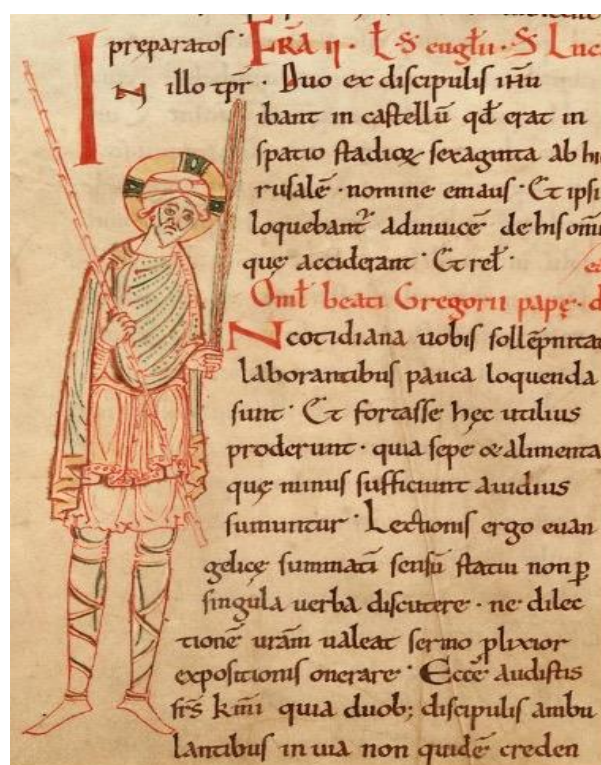 preparatos · F̅RA ii · L̅ · S̅ · eug̅lii · S̅ Luc
IN illo tp̅r · Duo ex discipulis ih̅u
ibant in castellū qd̅ erat in
spatio stadioꝝ sexaginta ab hie
rusalē · nomine emaus · Et ipsi
loquebant̅ adinuicē de his omi
quę acciderant · Et rel̅ ·
Omł beati Gregorii papę · d
IN cotidiana uobis sollēpnitat
laborantibus pauca loquenda
sunt · Et fortasse hęc utilius
proderunt · quia sepe & alimenta
quę minus sufficiunt auidius
sumuntur · Lectionis ergo euan
gelicę summati̅ sensū statui non ꝑ
singula uerba discutere · ne dilec
tionē ur̅am ualeat sermo plixior
expositionis onerare · Ecce audistis
fr̅s km̅i quia duob; discipulis ambu
lantibus in uia non quidē creden